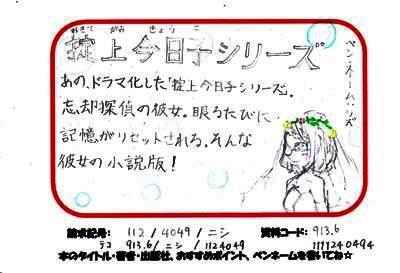 おきて がみ きょう こ
掟上今日子シリーズ
ペンネーム
あの、ドラマ化した「掟上今日子シリーズ」。
忘却探偵の彼女。眠るたびに
記憶がリセットされる。そんな
彼女の小説版!
請求記号: 112 / 4049 / ニシ 資料コード: 913.6
913.6 / ニシ / 1124049 1111240494
本のタイトル・著者・出版社、おすすめポイント、ペンネームを書いてね☆